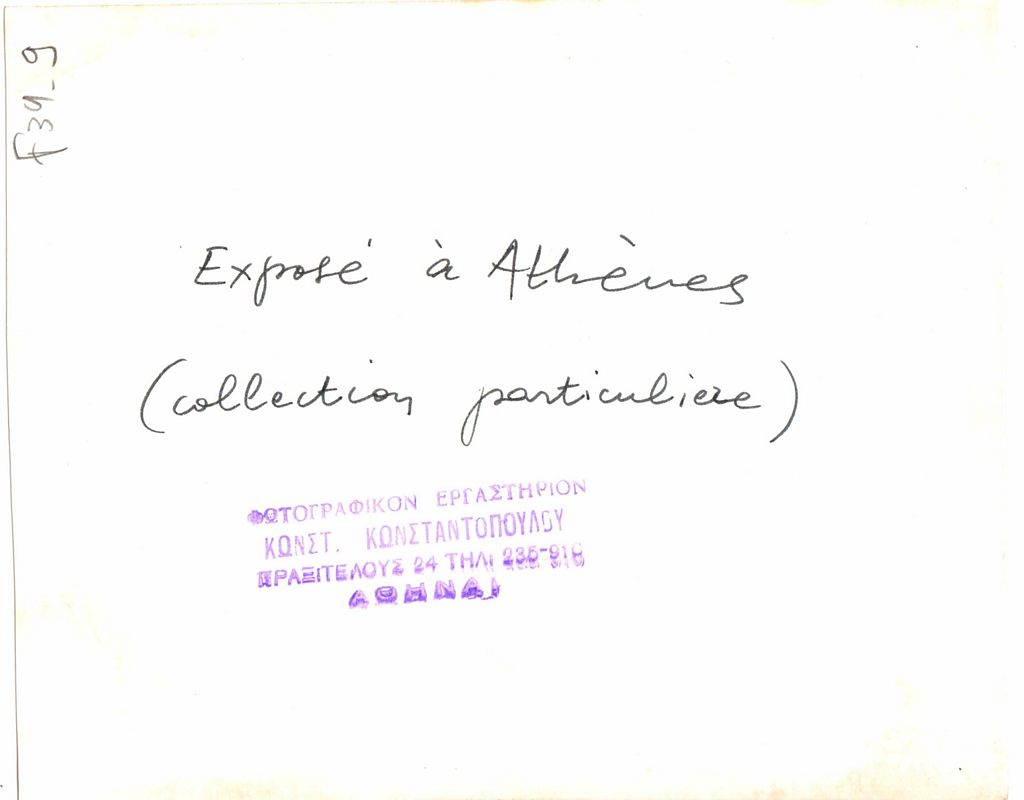 f39_9
Exposé à Athènes
(collection particulière)
ΦΩΤΟΓΡΑΦΙΚΟΝ ΕΡΓΑΣΤΗΡΙΟΝ
ΚΩΝΣΤ. ΚΩΝΣΤΑΝΤΟΠΟΥΛΟΥ
ΠΡΑΞΙΤΕΛΟΥΣ 24 ΤΗΛ:
ΑΘΗΝΑΙ